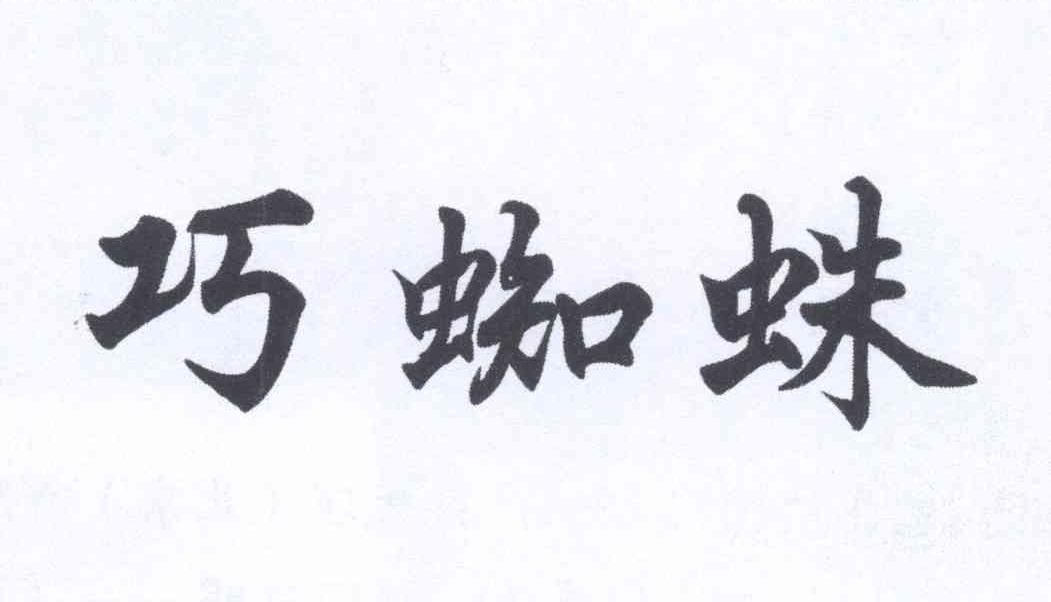 巧蜘蛛